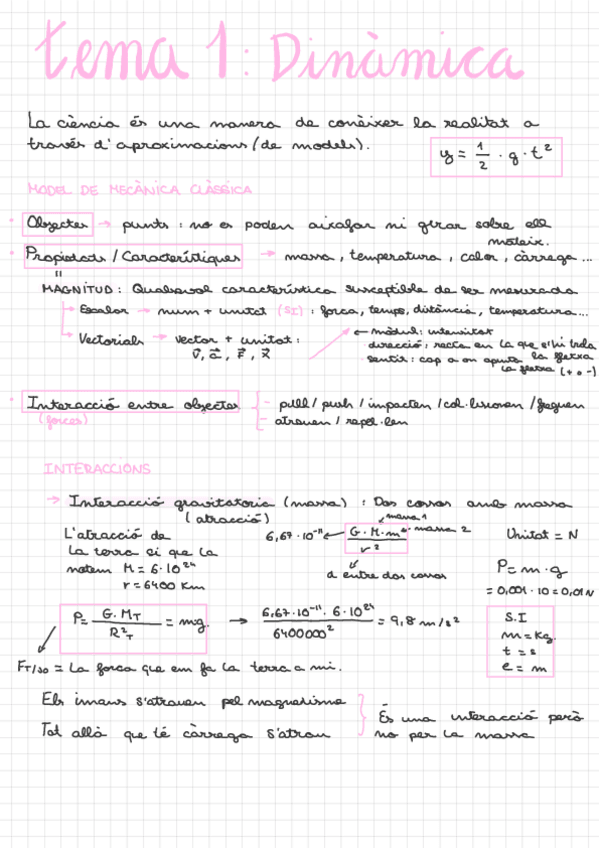 tema 1: Dinàmica
La ciència és una manera de conèixer la realitat a
través d'aproximacions/(de models).
y = 1/2 · g · t²
MODEL DE MECÀNICA CLÀSSICA
Objectes → punts: no es poden aixafar ni girar sobre ell
mateix.
Propietats / Característiques → massa, temperatura, calor, càrrega...
"
MAGNITUD: Qualsevol característica susceptible de ser mesurada
Escalar → num + unitat (SI): força, temps, distància, temperatura...
Vectorials → vector + unitat:
v⃗, a⃗, F⃗, x⃗
← mòdul: intensitat
direcció: recta en la que s'hi troba
la fletxa
sentit: cap a on apunta
la fletxa (+ o -)
Interacció entre objectes
(forces)
- pull / push / impacten / col·lisionen / freguen
- atrauen / repel·len
INTERACCIONS
→ Interacció gravitatòria (massa): Dos cossos amb massa
(atracció)
L'atracció de
la terra si que la
notem M = 6·10²⁴
r = 6400 Km
6,67·10⁻¹¹ G·M·m / r²
massa 1
massa 2
d entre dos cossos
Unitat = N
P = m·g
= 0,001·10 = 0,01N
P = G·M_T / R²_T = mg. → 6,67·10⁻¹¹·6·10²⁴ / 6400000² = 9,8 m/s²
S.I
m = Kg.
t = s
e = m
F_T/jo = La força que em fa la terra a mi.
Els imans s'atrauen pel magnetisme
Tot allà que té càrrega s'atrau
És una interacció però
no per la massa